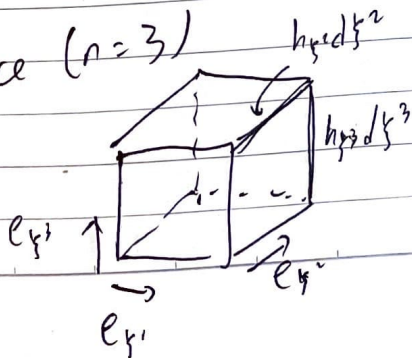 ce (n=3)
h_{ξ²}dξ²
h_{ξ³}dξ³
e_{ξ³}
e_{ξ²}
e_{ξ¹}